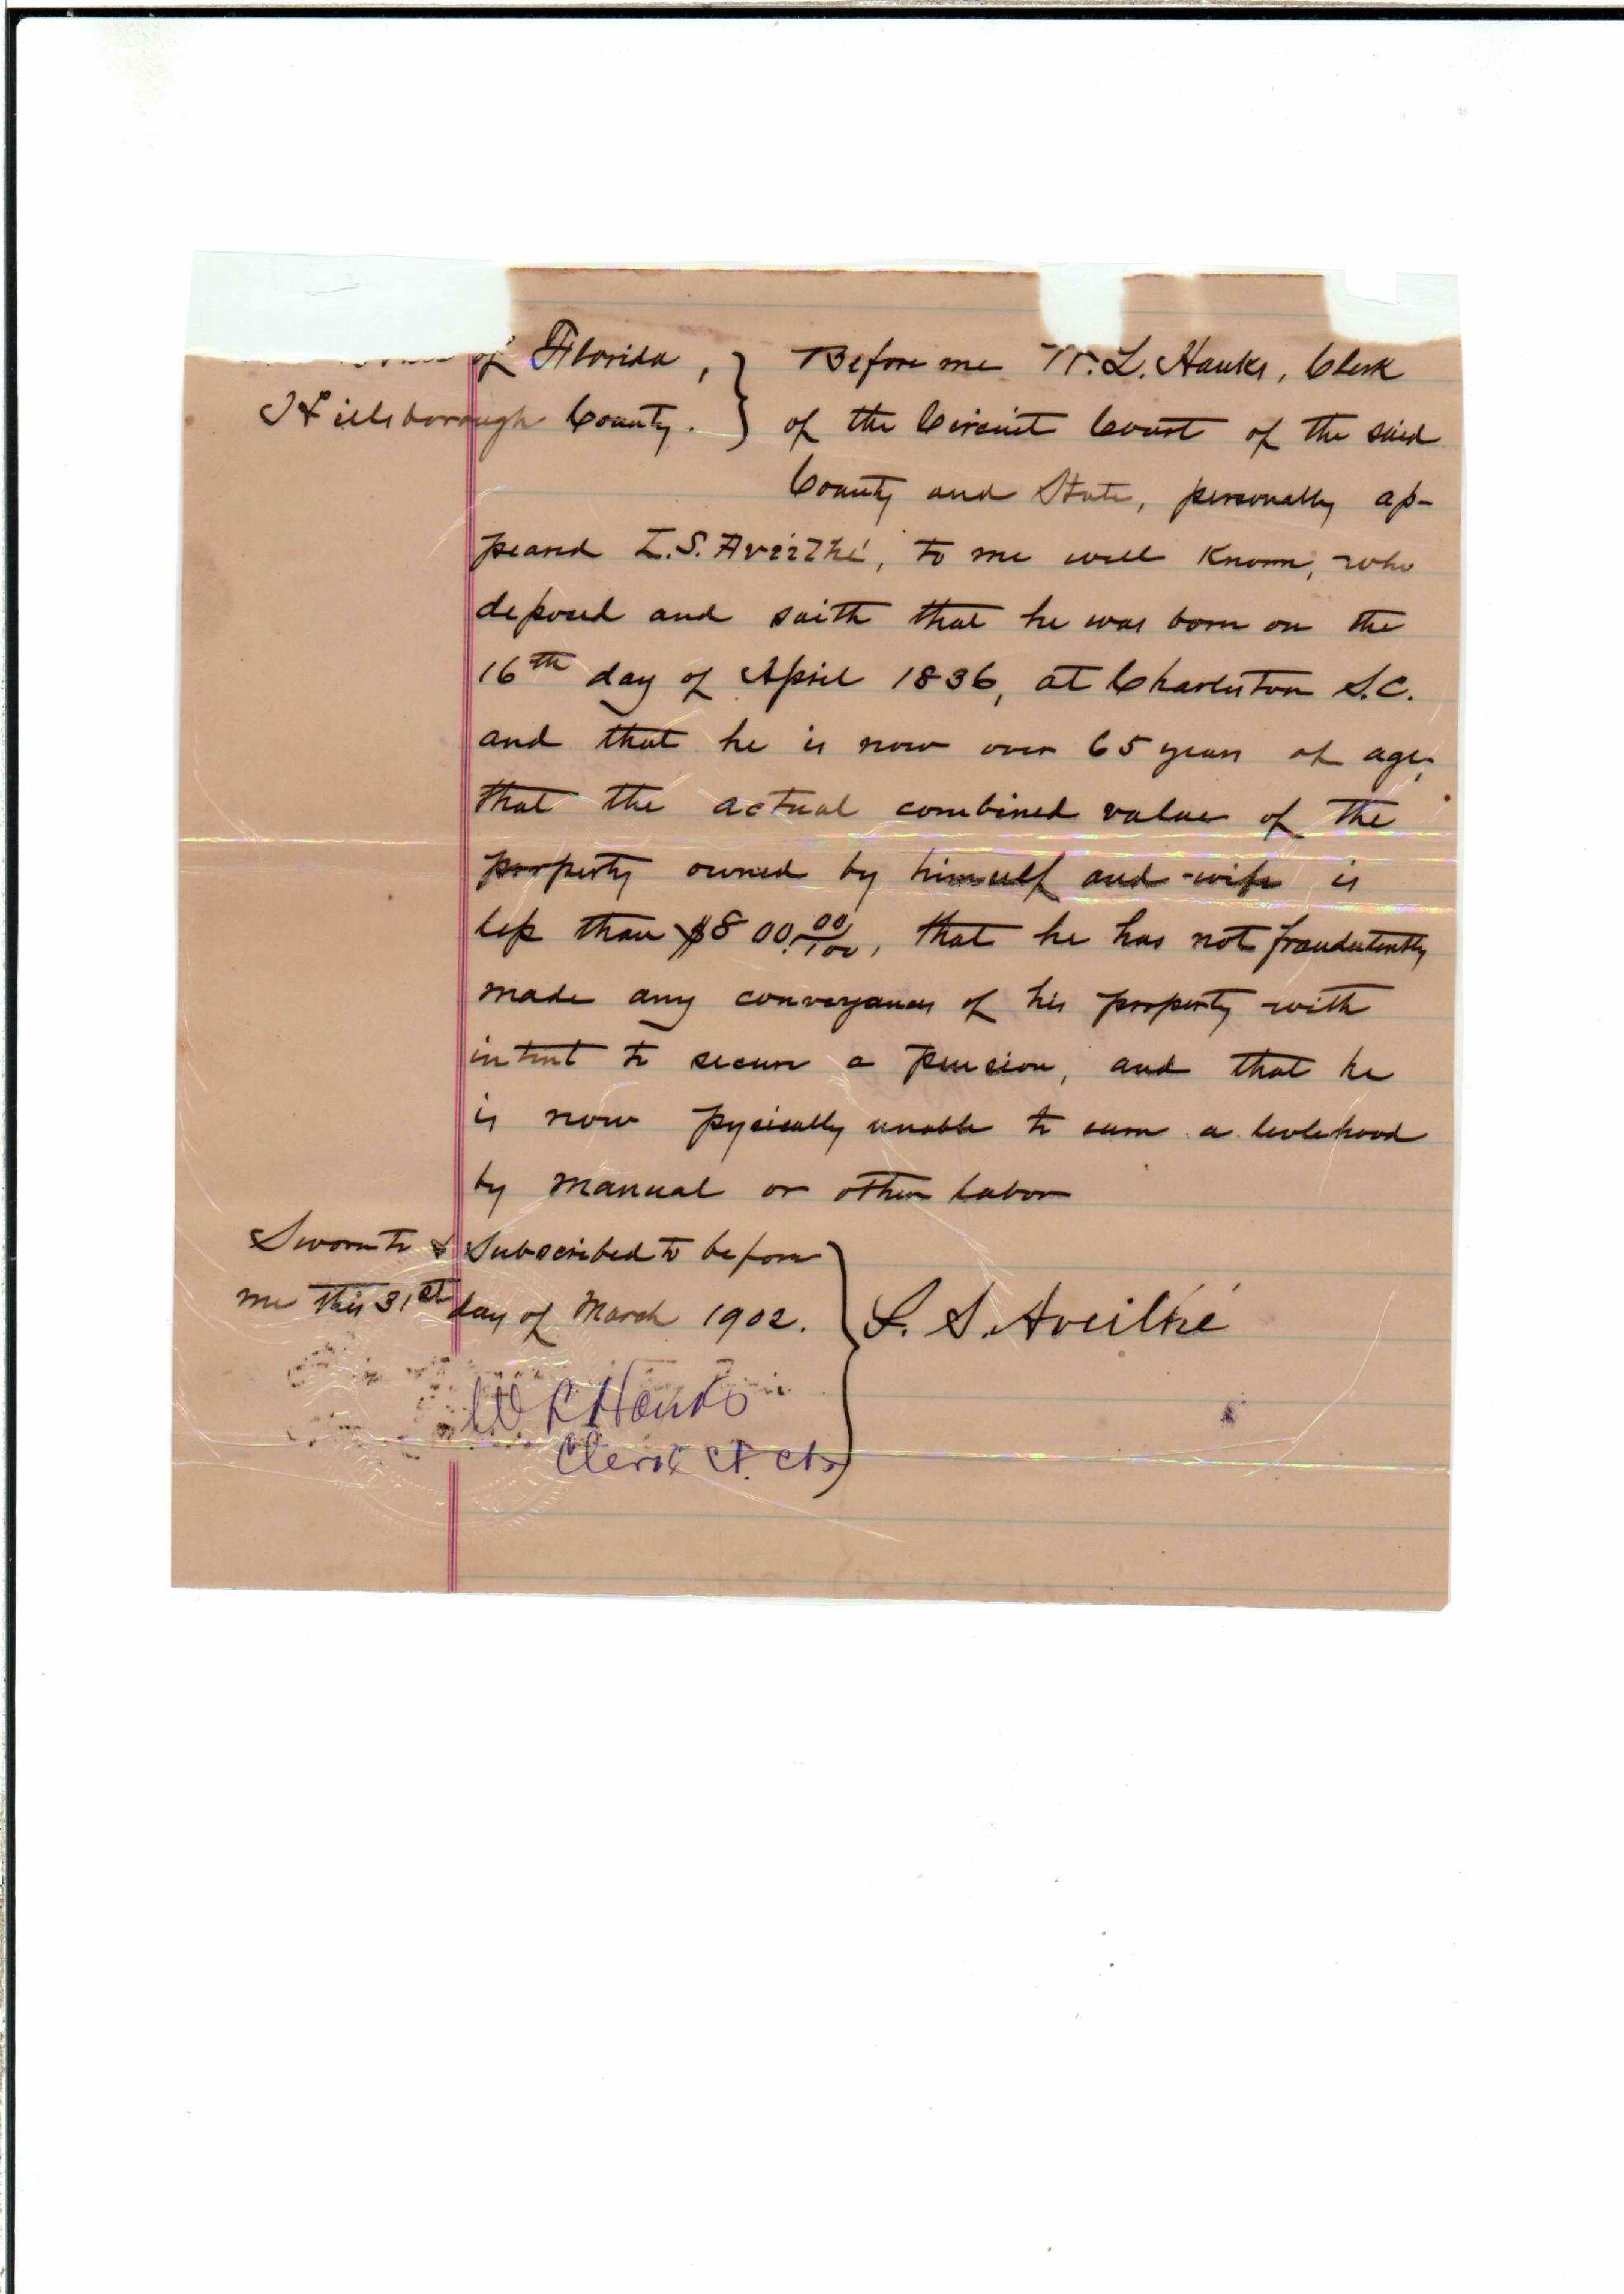 of Florida, } Before me W. L. Hanks, Clerk
Hillsborough County. } of the Circuit Court of the said
County and State, personally ap-
peared L.S. Aveilhé, to me well known, who
deposed and saith that he was born on the
16th day of April 1836, at Charleston S.C.
and that he is now over 65 years of age,
that the actual combined value of the
property owned by himself and wife is
less than $800.00/100, that he has not fraudulently
made any conveyances of his property with
intent to secure a pension, and that he
is now pysically unable to earn a livlehood
by manual or other labor
Sworn to & Subscribed to before
me this 31st day of March 1902. } L. S. Aveilhé
W L Hanks
Clerk Ct. Ct.